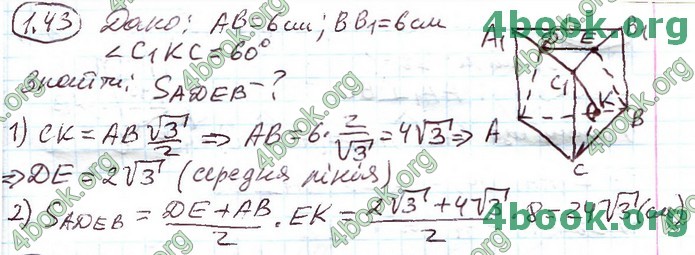 1.43 Дано: AB=6см; BB₁=6см
∠C₁KC=60°
Знайти: S_ADEB-?
1) CK = AB √3/2 ⇒ AB=6·2/√3=4√3 ⇒
⇒ DE = 2√3 (середня лінія)
2) S_ADEB = (DE+AB)/2 · EK = (2√3+4√3)/2 · 8 = 24√3 (см)
A₁ E B₁
C₁
K
A B
C
4book.org 4book.org 4book.org
4book.org 4book.org 4book.org
4book.org 4book.org 4book.org